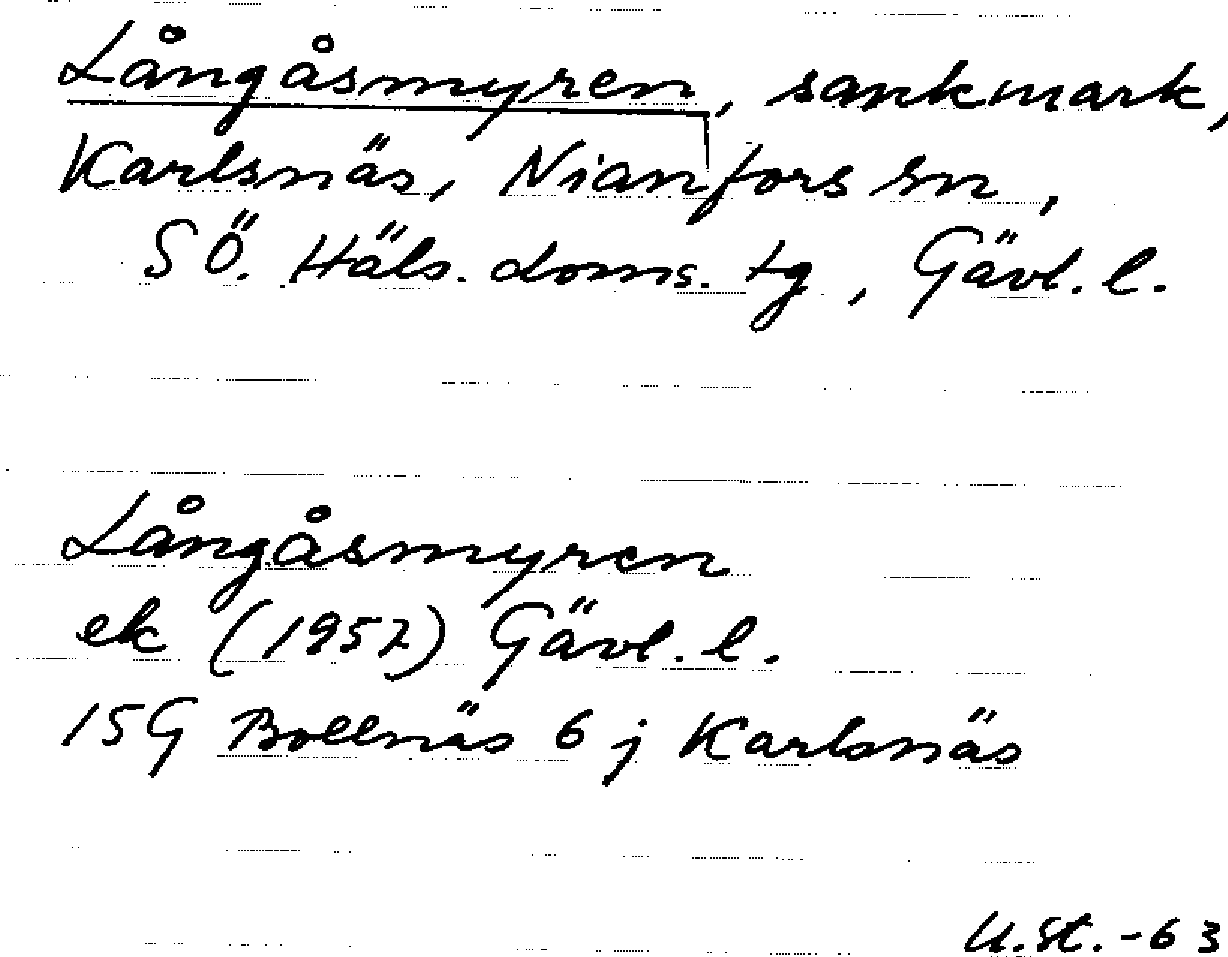 Långåsmyren, sankmark,
Karlsnäs, Nianfors sn,
SÖ. Häls. doms. tg, Gävl. l.
Långåsmyren
ek (1957) Gävl. l.
15G Bollnäs 6 j Karlsnäs
U.St.-63